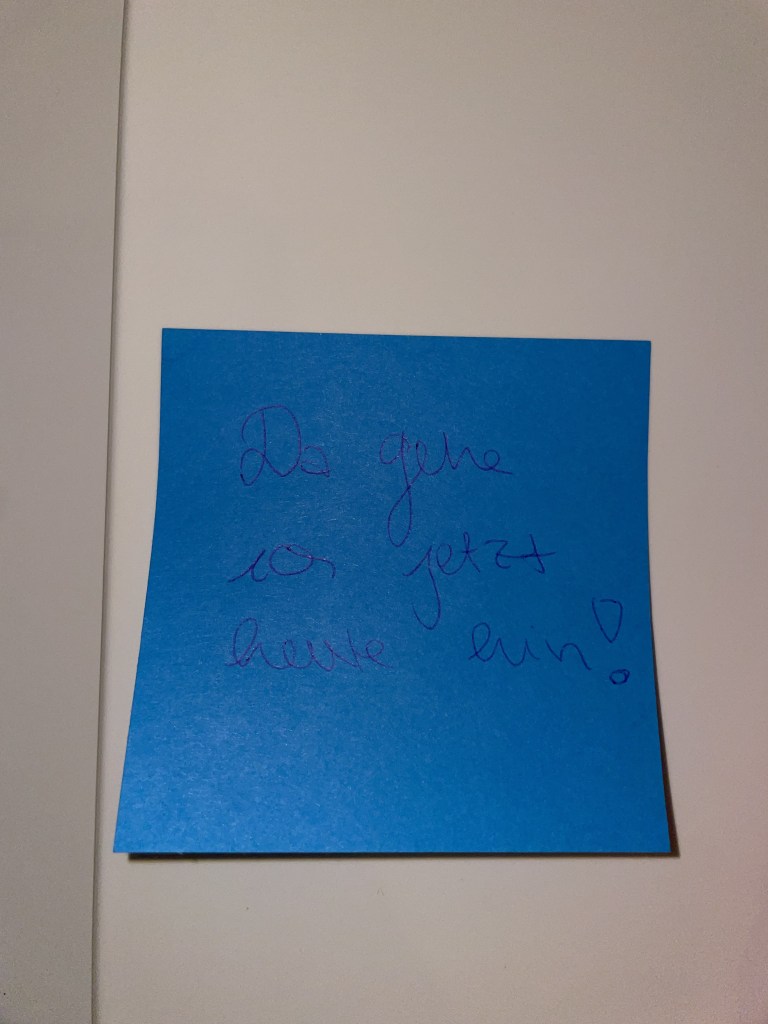 Da gehe
ich jetzt
heute hin!